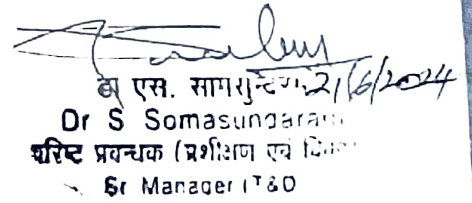 डा एस. सोमसुन्दरम 21/6/2024
Dr S Somasundaram
वरिष्ट प्रबन्धक (प्रशीक्षण एवं
Sr Manager (T&D